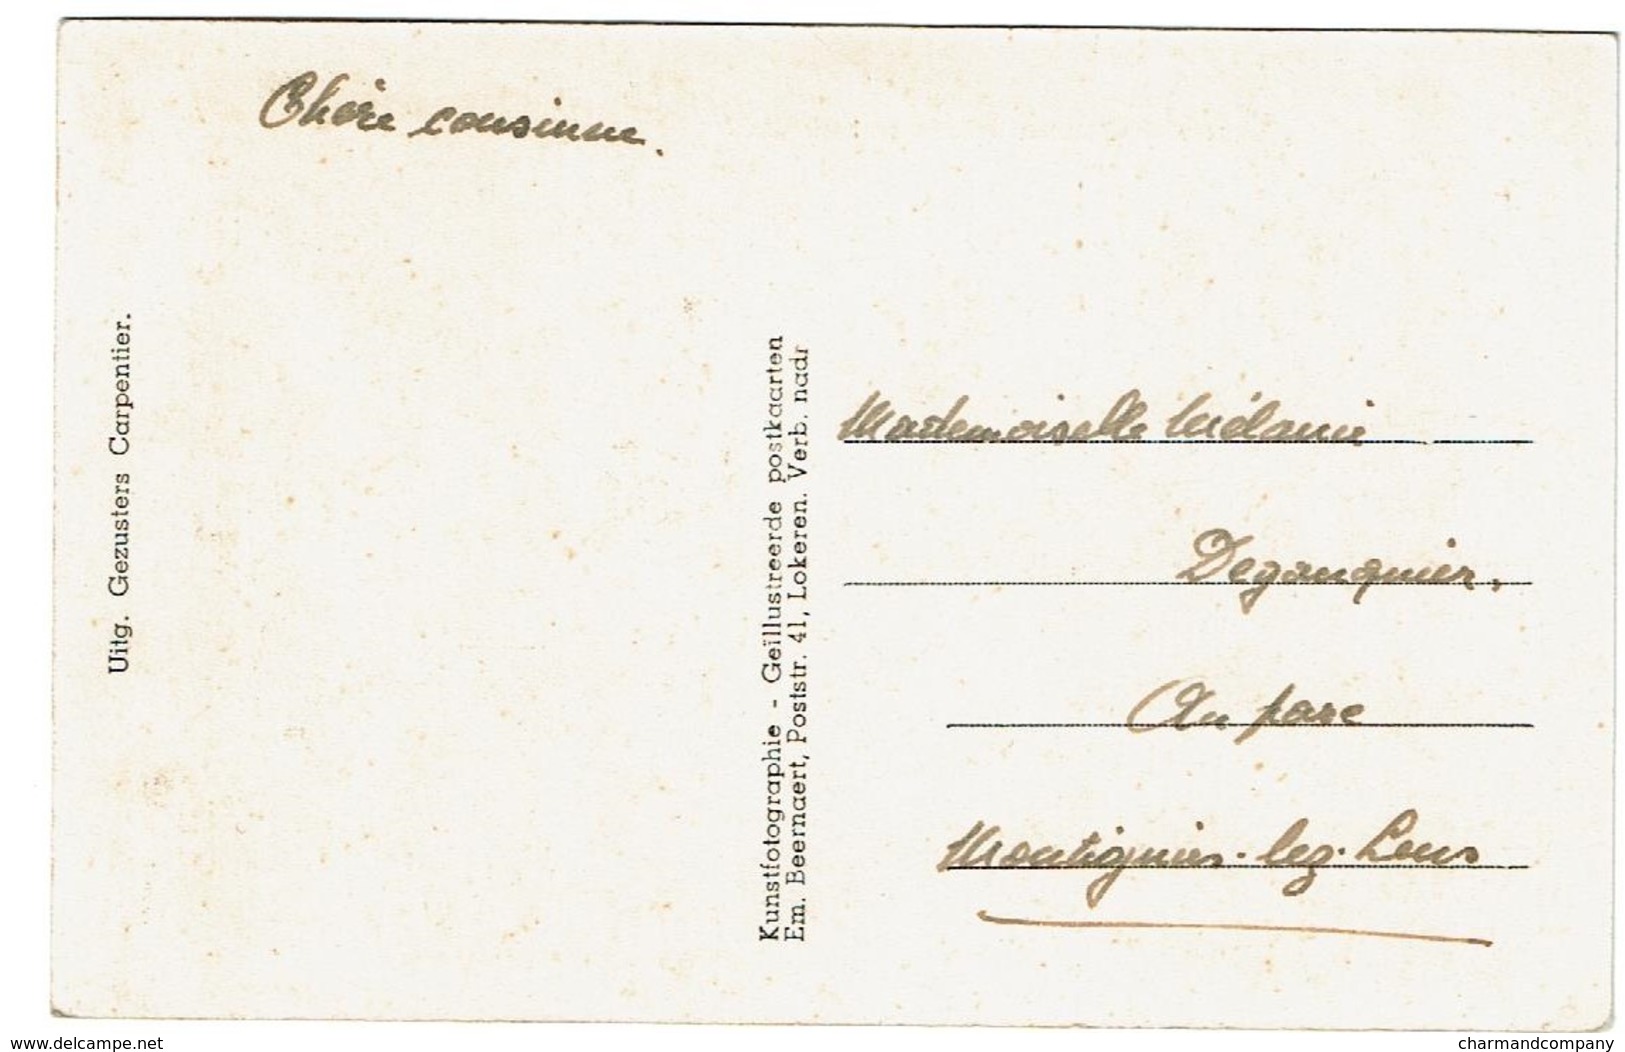 Chère cousinne.
Uitg. Gezusters Carpentier.
Kunstfotographie - Geïllustreerde postkaarten
Em. Beernaert, Poststr. 41, Lokeren. Verb. nadr
Mademoiselle Mélanie
Deganquier,
Au parc
Montignies-lez-Lens
delcampe.net
charmandcompany